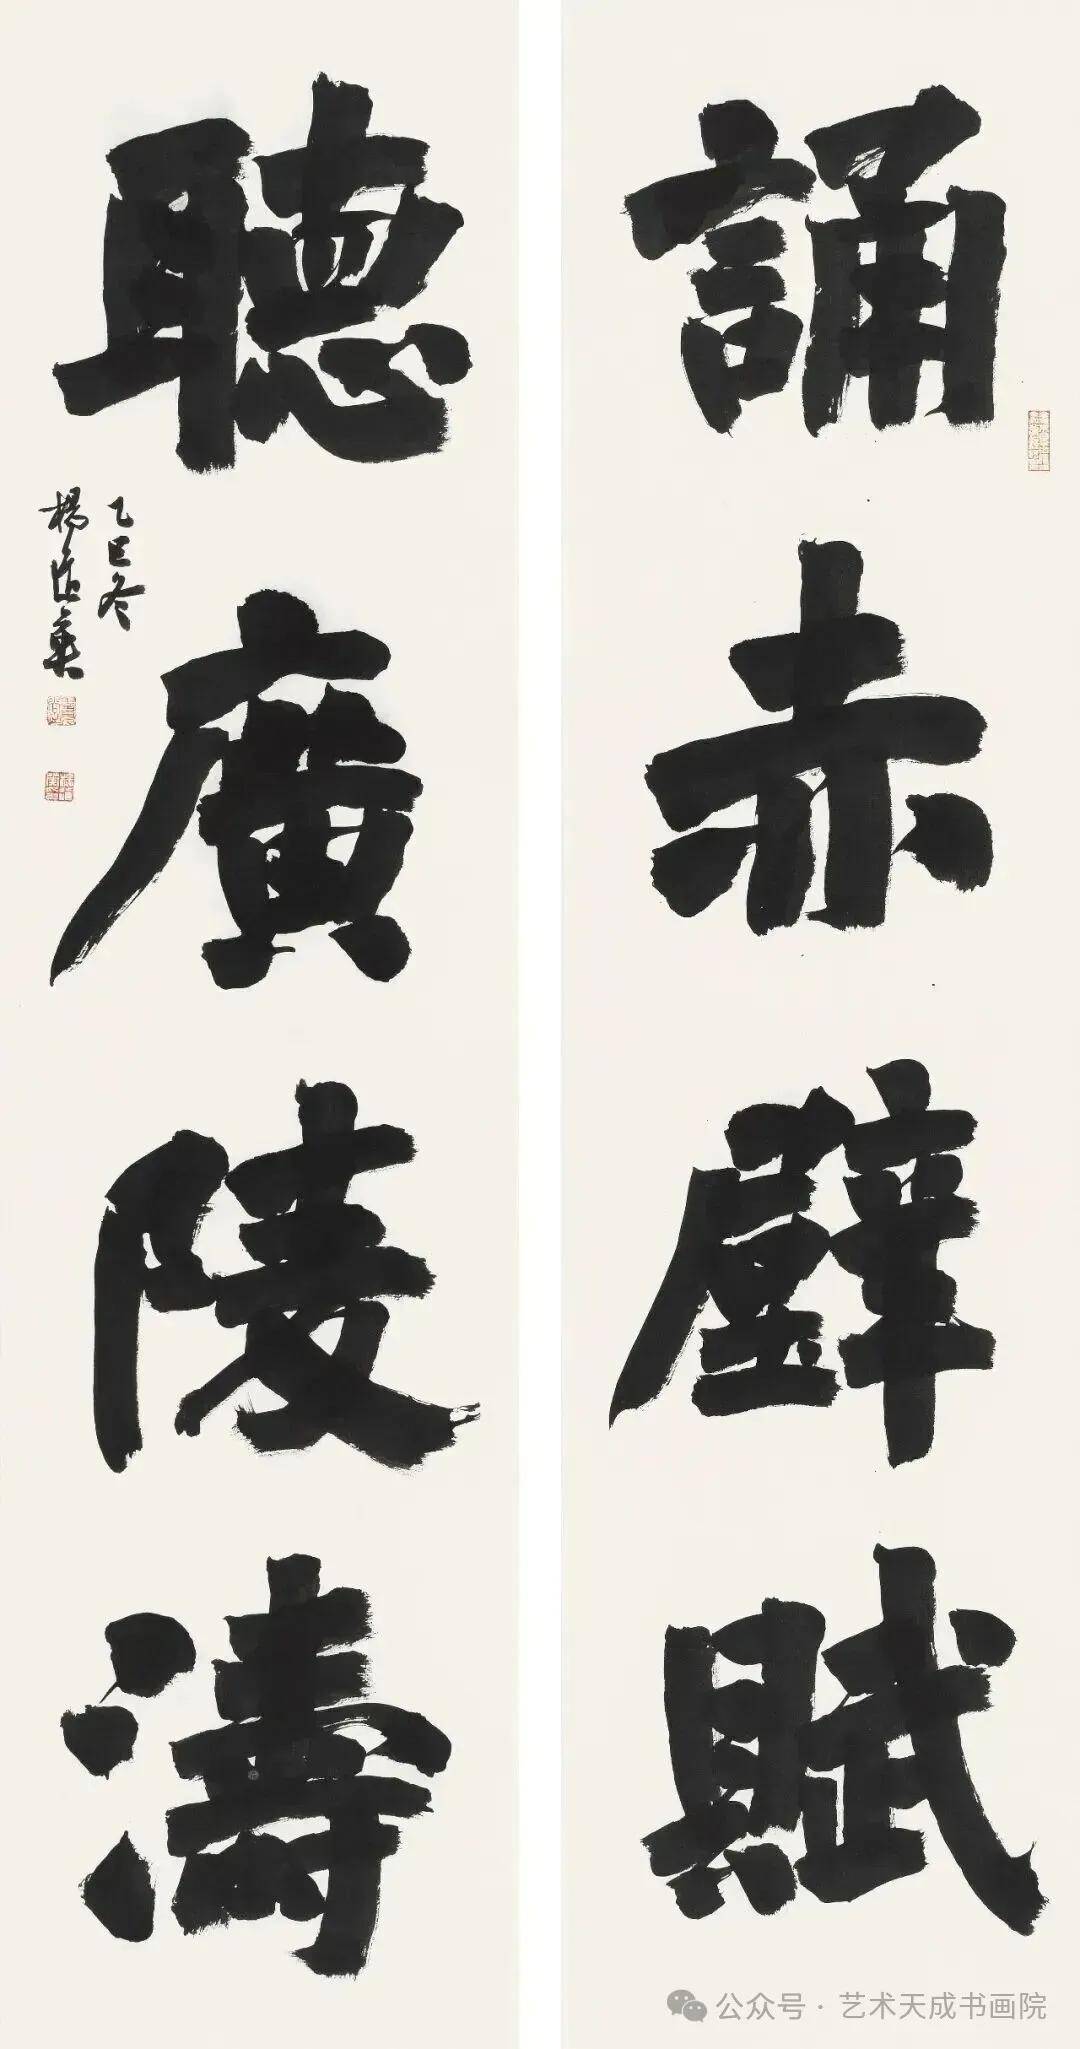 誦赤壁賦
聽廣陵濤
乙巳冬
公众号·艺术天成书画院